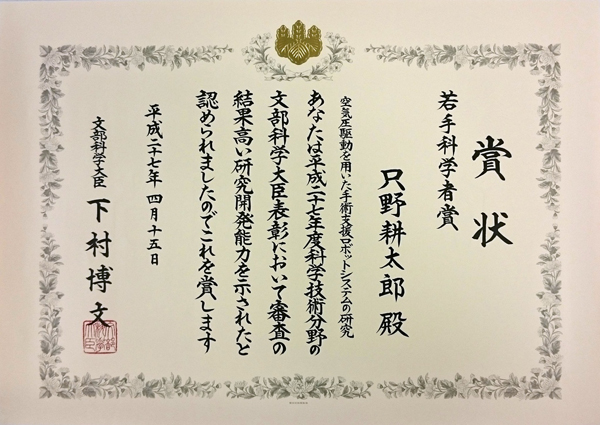 賞状
若手科学者賞
只野耕太郎殿
空気圧駆動を用いた手術支援ロボットシステムの研究
あなたは平成二十七年度科学技術分野の
文部科学大臣表彰において審査の
結果高い研究開発能力を示されたと
認められましたのでこれを賞します
平成二十七年四月十五日
文部科学大臣 下村博文